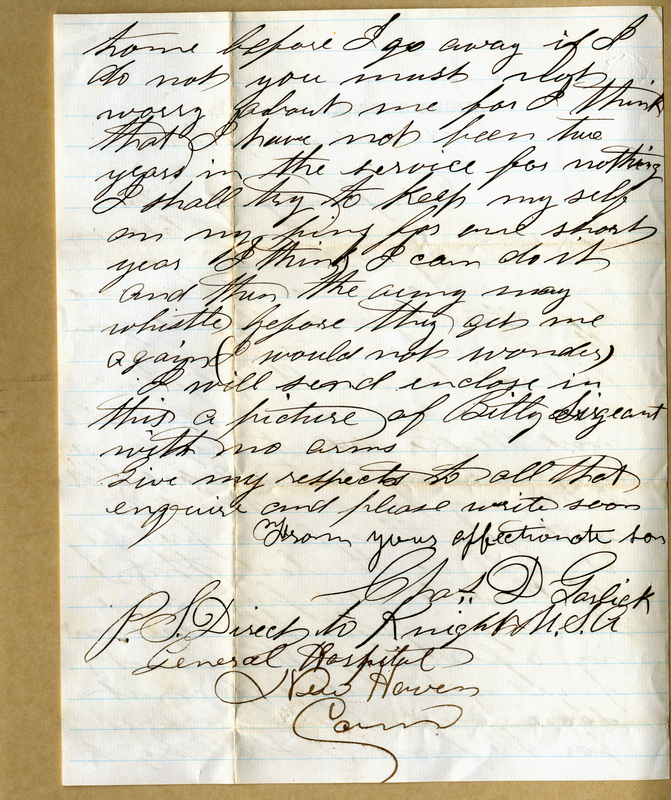 home before I go away if I
do not you must not
worry about me for I think
that I have not been two
years in the service for nothing
I shall try to keep my self
on my ping for one short
year I think I can do it
and then the army may
whistle before they get me
again (I would not wonder)
I will send enclose in
this a picture of Billy Sirgeant
with no arms
Give my respects to all that
enquire and please write soon
From your affectionate son
Chas D Garlick
P. S. Direct to Knight U.S.A
General Hospital
New Haven
Conn